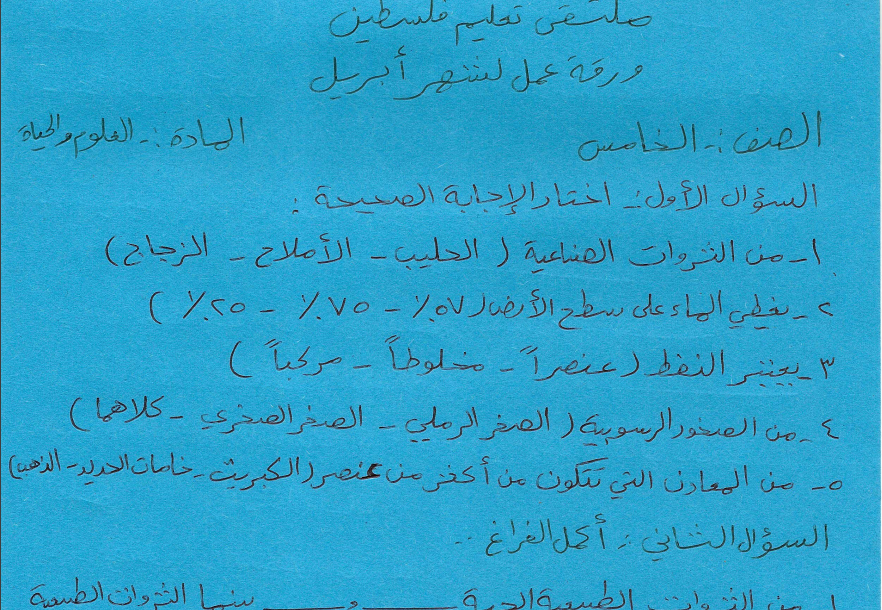 ملتقى تعليم فلسطين
ورقة عمل لشهر أبريل
الصف :- الخامس المادة :- العلوم والحياة
السؤال الأول :- اختار الإجابة الصحيحة :
١- من الثروات الصناعية ( الحليب - الأملاح - الزجاج )
٢- يغطي الماء على سطح الأرض ( ٥٧٪ - ٧٥٪ - ٢٥٪ )
٣- يعتبر النفط ( عنصراً - مخلوطاً - مركباً )
٤- من الصخور الرسوبية ( الصخر الرملي - الصخر الصخري - كلاهما )
٥- من المعادن التي تتكون من أكثر من عنصر ( الكبريت - خامات الحديد - الذهب )
السؤال الثاني :- أكمل الفراغ ..
١- من الثروات الطبيعية الحية ____ و ____ بينما الثروات الطبيعية